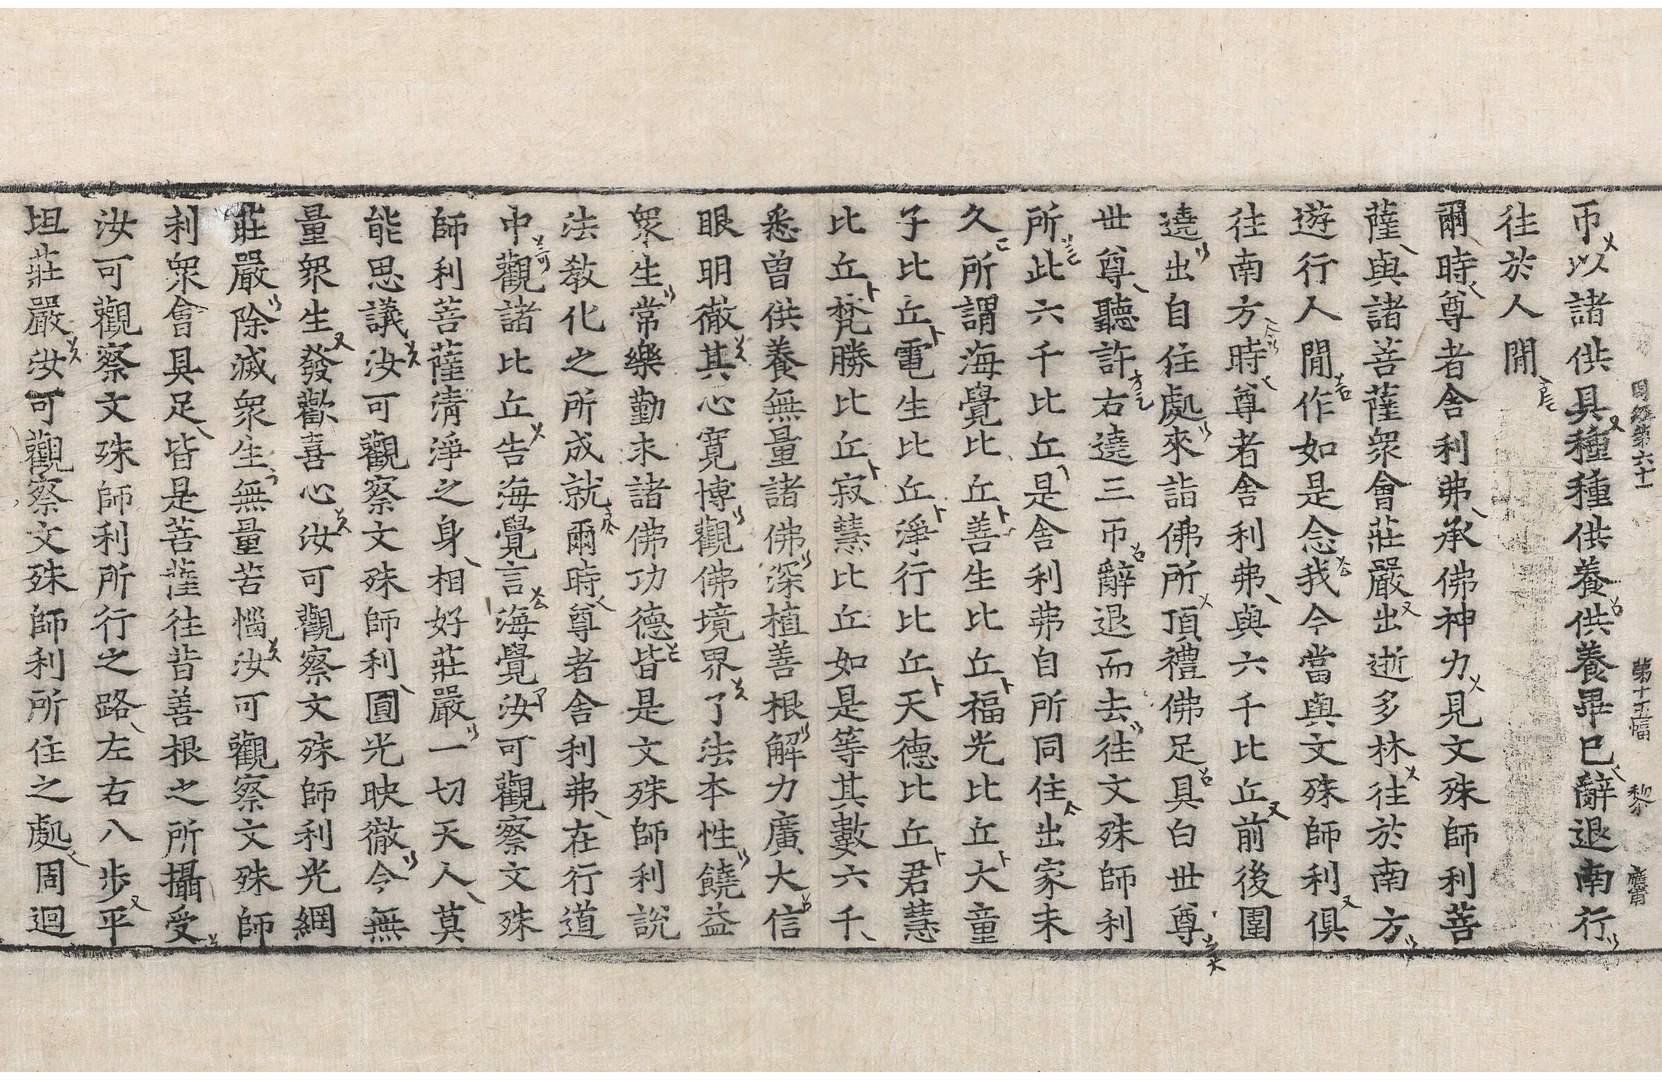 帀以諸供具種種供養供養畢已辭退南行
往於人閒
爾時尊者舍利弗承佛神力見文殊師利菩
薩與諸菩薩衆會莊嚴出逝多林往於南方
遊行人閒作如是念我今當與文殊師利俱
往南方時尊者舍利弗與六千比丘前後圍
遶出自住處來詣佛所頂禮佛足具白世尊
世尊聽許右遶三帀辭退而去往文殊師利
所此六千比丘是舍利弗自所同住出家未
久所謂海覺比丘善生比丘福光比丘大童
子比丘電生比丘淨行比丘天德比丘君慧
比丘梵勝比丘寂慧比丘如是等其數六千
悉曾供養無量諸佛深植善根解力廣大信
眼明徹其心寬博觀佛境界了法本性饒益
衆生常樂勤求諸佛功德皆是文殊師利說
法教化之所成就爾時尊者舍利弗在行道
中觀諸比丘告海覺言海覺汝可觀察文殊
師利菩薩清淨之身相好莊嚴一切天人莫
能思議汝可觀察文殊師利圓光映徹令無
量衆生發歡喜心汝可觀察文殊師利光網
莊嚴除滅衆生無量苦惱汝可觀察文殊師
利衆會具足皆是菩薩往昔善根之所攝受
汝可觀察文殊師利所行之路左右八步平
坦莊嚴汝可觀察文殊師利所住之處周迴